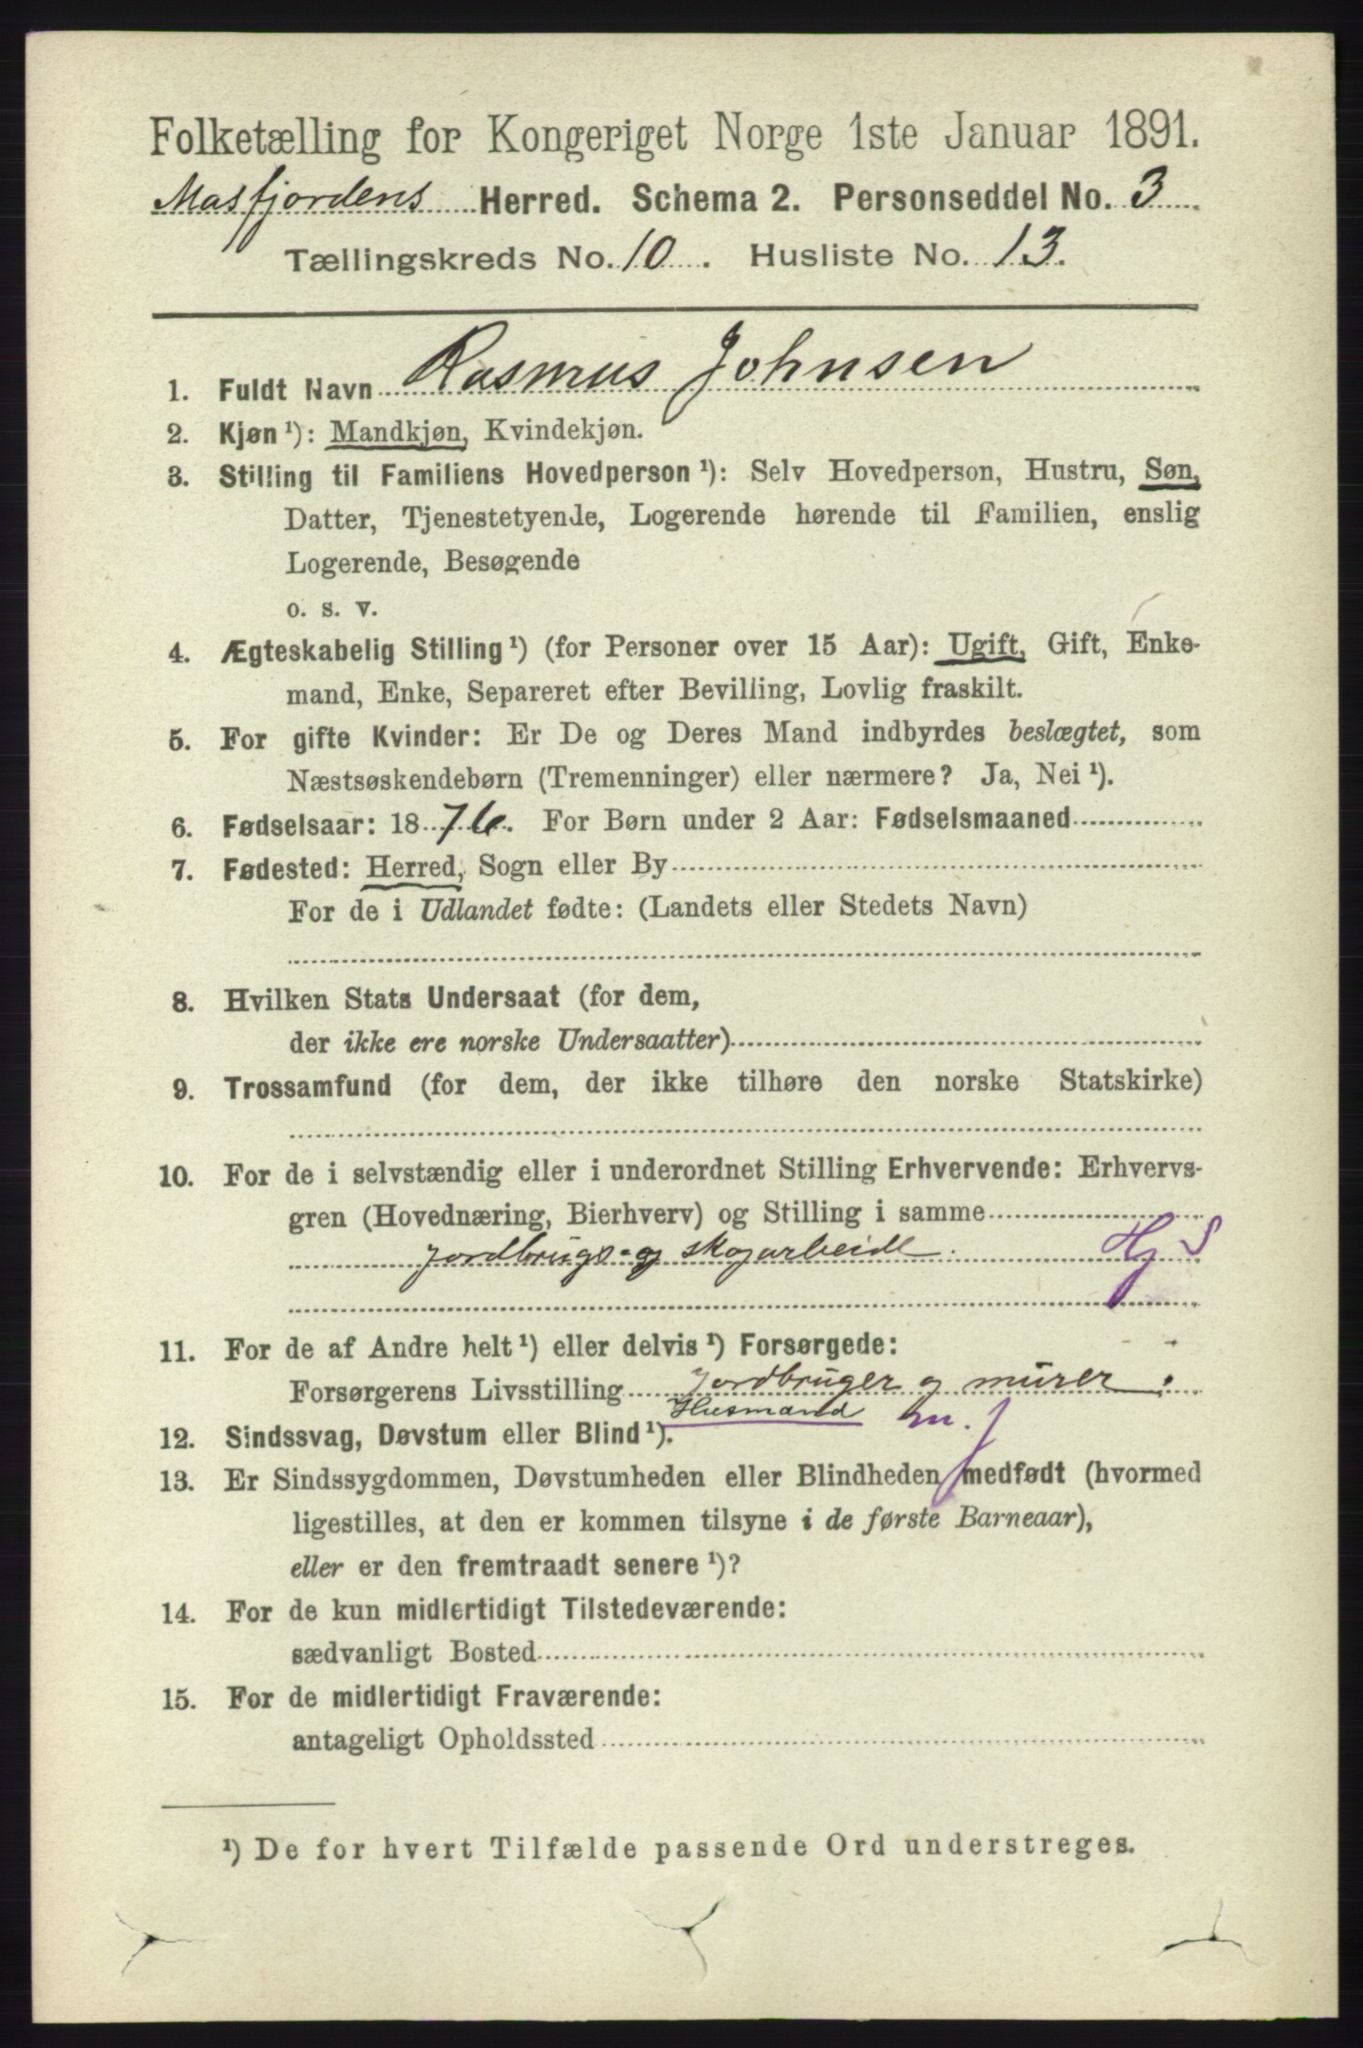 Folketælling for Kongeriget Norge 1ste Januar 1891.
Masfjordens Herred. Schema 2. Personseddel No. 3
Tællingskreds No. 10. Husliste No. 13.
1. Fuldt Navn Rasmus Johnsen
2. Kjøn¹): Mandkjøn, Kvindekjøn.
3. Stilling til Familiens Hovedperson¹): Selv Hovedperson, Hustru, Søn,
Datter, Tjenestetyende, Logerende hørende til Familien, enslig
Logerende, Besøgende
o. s. v.
4. Ægteskabelig Stilling¹) (for Personer over 15 Aar): Ugift, Gift, Enke-
mand, Enke, Separeret efter Bevilling, Lovlig fraskilt.
5. For gifte Kvinder: Er De og Deres Mand indbyrdes beslægtet, som
Næstsøskendebørn (Tremenninger) eller nærmere? Ja, Nei¹).
6. Fødselsaar: 1876. For Børn under 2 Aar: Fødselsmaaned
7. Fødested: Herred, Sogn eller By
For de i Udlandet fødte: (Landets eller Stedets Navn)
8. Hvilken Stats Undersaat (for dem,
der ikke ere norske Undersaatter)
9. Trossamfund (for dem, der ikke tilhøre den norske Statskirke)
10. For de i selvstændig eller i underordnet Stilling Erhvervende: Erhvervs-
gren (Hovednæring, Bierhverv) og Stilling i samme
jordbrugs- og skogarbeide. Hj S
11. For de af Andre helt¹) eller delvis¹) Forsørgede:
Forsørgerens Livsstilling Jordbruger og murer.
Husmand m. j
12. Sindssvag, Døvstum eller Blind¹).
13. Er Sindssygdommen, Døvstumheden eller Blindheden medfødt (hvormed
ligestilles, at den er kommen tilsyne i de første Barneaar),
eller er den fremtraadt senere¹)?
14. For de kun midlertidigt Tilstedeværende:
sædvanligt Bosted
15. For de midlertidigt Fraværende:
antageligt Opholdssted
¹) De for hvert Tilfælde passende Ord understreges.